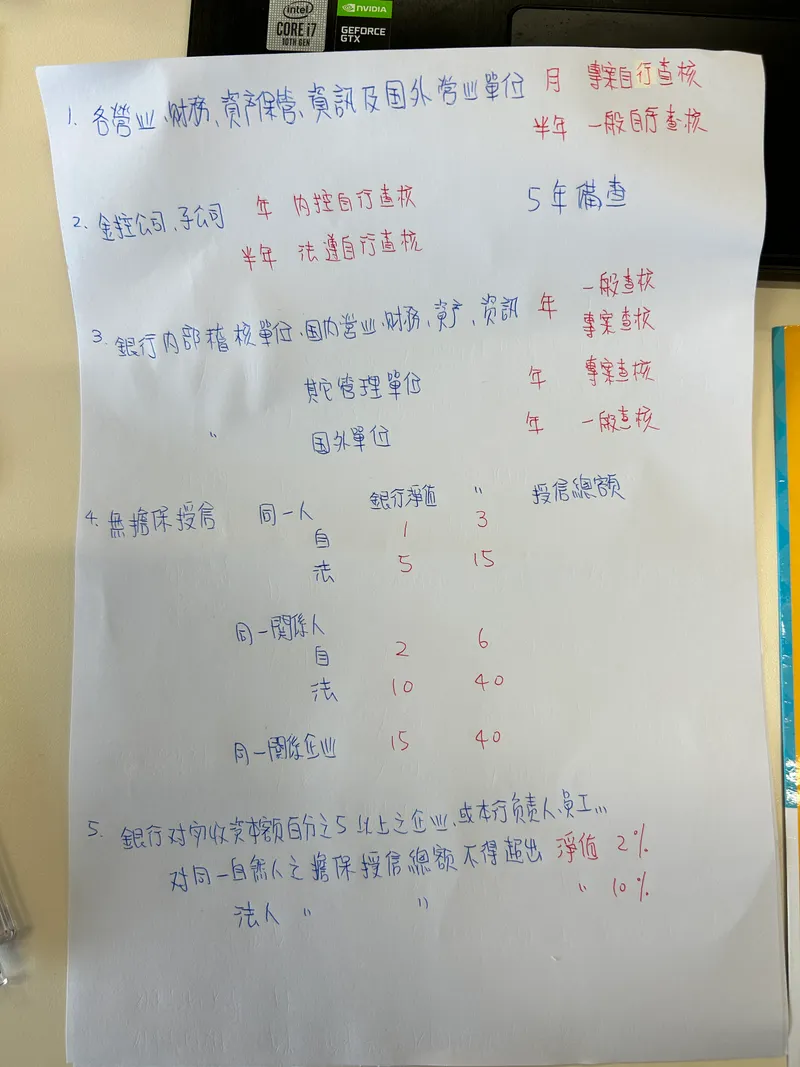 intel
CORE i7
10TH GEN
NVIDIA
GEFORCE
GTX
1. 各營业、财務、資产保管、資訊及国外营业單位 月 專案自行查核
半年 一般自行查核
2. 金控公司、子公司 年 内控自行查核 5年備查
半年 法遵自行查核
3. 銀行内部稽核單位、国内营业、财務、資产、資訊 年 一般查核
專案查核
其它管理單位 年 專案查核
〃 国外單位 年 一般查核
4. 無擔保授信 同一人 銀行淨值 〃 授信總額
自 1 3
法 5 15
同一関係人
自 2 6
法 10 40
同一関係企业 15 40
5. 銀行对实收资本額百分之5以上之企业、或本行负责人、員工...
对同一自然人之擔保授信總額不得超出 淨值 2%
法人 〃 〃 〃 10%